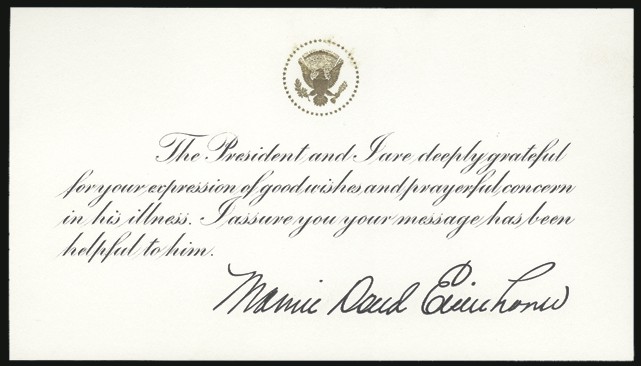 The President and I are deeply grateful
for your expression of good wishes and prayerful concern
in his illness. I assure you your message has been
helpful to him.
Mamie Doud Eisenhower